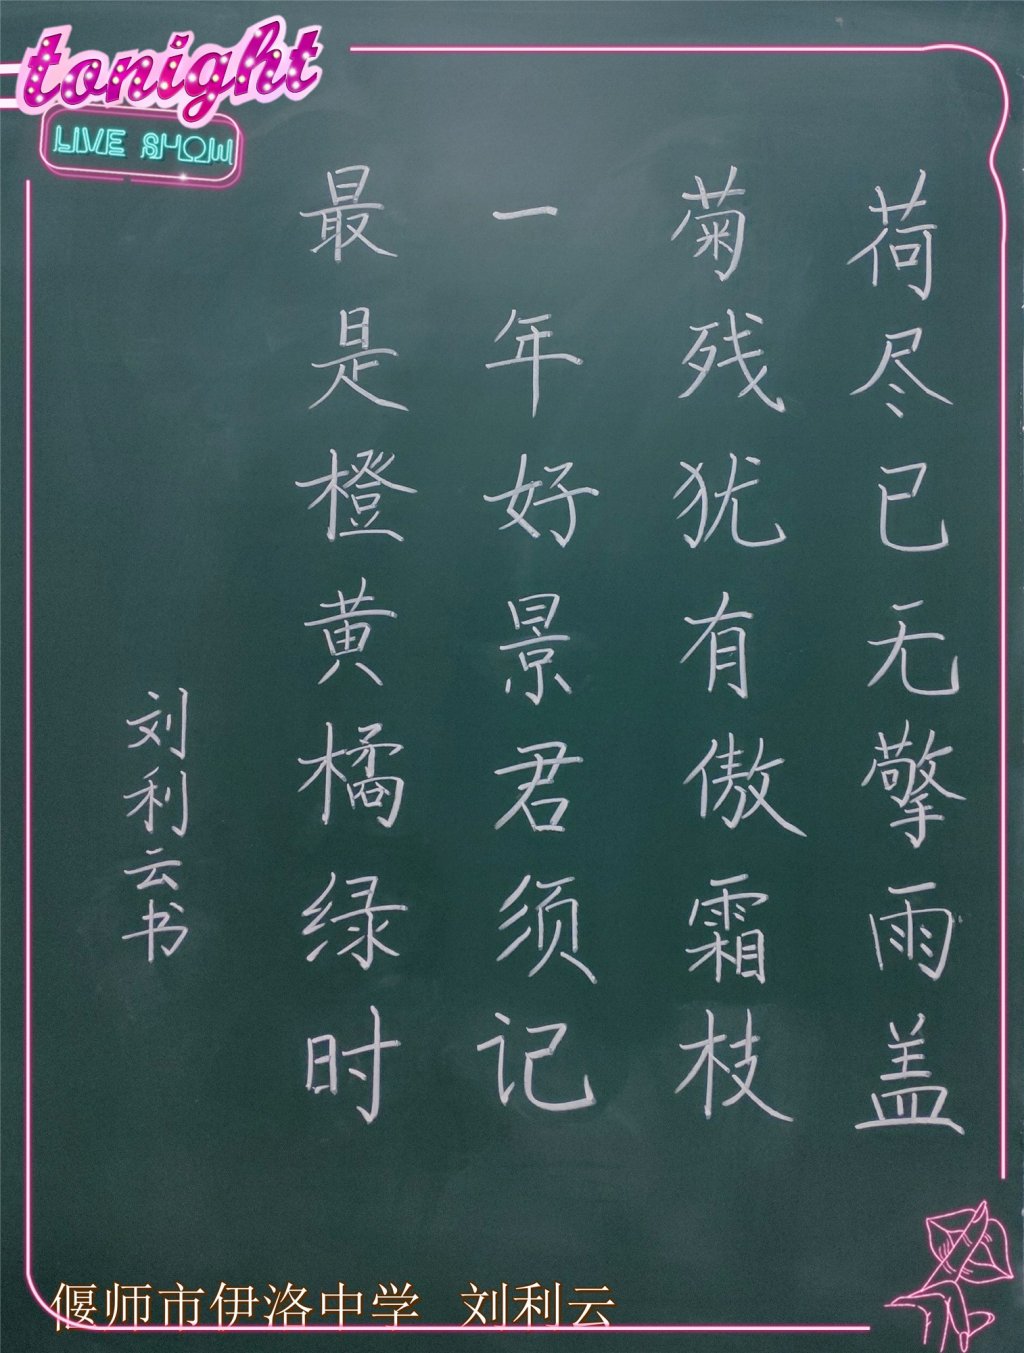 tonight
LIVE SHOW
荷尽已无擎雨盖
菊残犹有傲霜枝
一年好景君须记
最是橙黄橘绿时
刘利云书
偃师市伊洛中学 刘利云